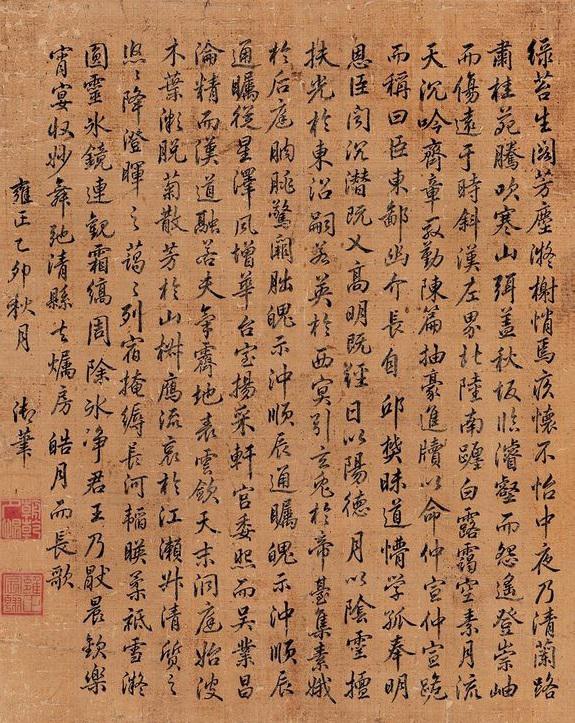 綠苔生閣芳塵凝榭悄焉疚懷不怡中夜乃清蘭路
肅桂苑騰吹寒山弭蓋秋坂臨濬壑而怨遙登崇岫
而傷遠于時斜漢左界北陸南躔白露靄空素月流
天沉吟齊章殷勤陳篇抽毫進牘以命仲宣仲宣跪
而稱曰臣東鄙幽介長自邱樊昧道懵學孤奉明
恩臣聞沉潛既乂高明既經日以陽德月以陰靈擅
扶光於東沼嗣若英於西冥引玄兔於帝臺集素娥
於后庭朒朓驚闕朏魄示沖順辰通矚魄示沖順辰
通矚從星澤風增華台室揚采軒宮委照而吳業昌
淪精而漢道融若夫氣霽地表雲斂天末洞庭始波
木葉漸脫菊散芳於山椒鴈流哀於江瀨升清質之
悠〻降澄暉之藹〻列宿掩縟長河韜暎柔祇雪凝
圓靈水鏡連觀霜縞周除冰淨君王乃厭晨歡樂
宵宴收妙舞弛清縣去燭房皓月而長歌
雍正乙卯秋月 御筆